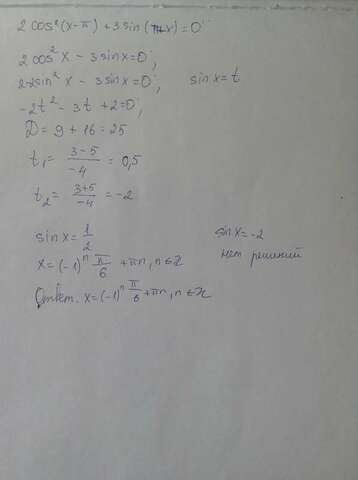 2 cos²(x-π) + 3 sin(π+x) = 0
2 cos² x - 3 sin x = 0;
2-2 sin² x - 3 sin x = 0; sin x = t
-2t² - 3t + 2 = 0;
D = 9 + 16 = 25
t₁ = (3-5)/(-4) = 0,5
t₂ = (3+5)/(-4) = -2
sin x = 1/2 sin x = -2
x = (-1)ⁿ π/6 + πn, n ∈ Z нет решений
Ответ. x = (-1)ⁿ π/6 + πn, n ∈ Z